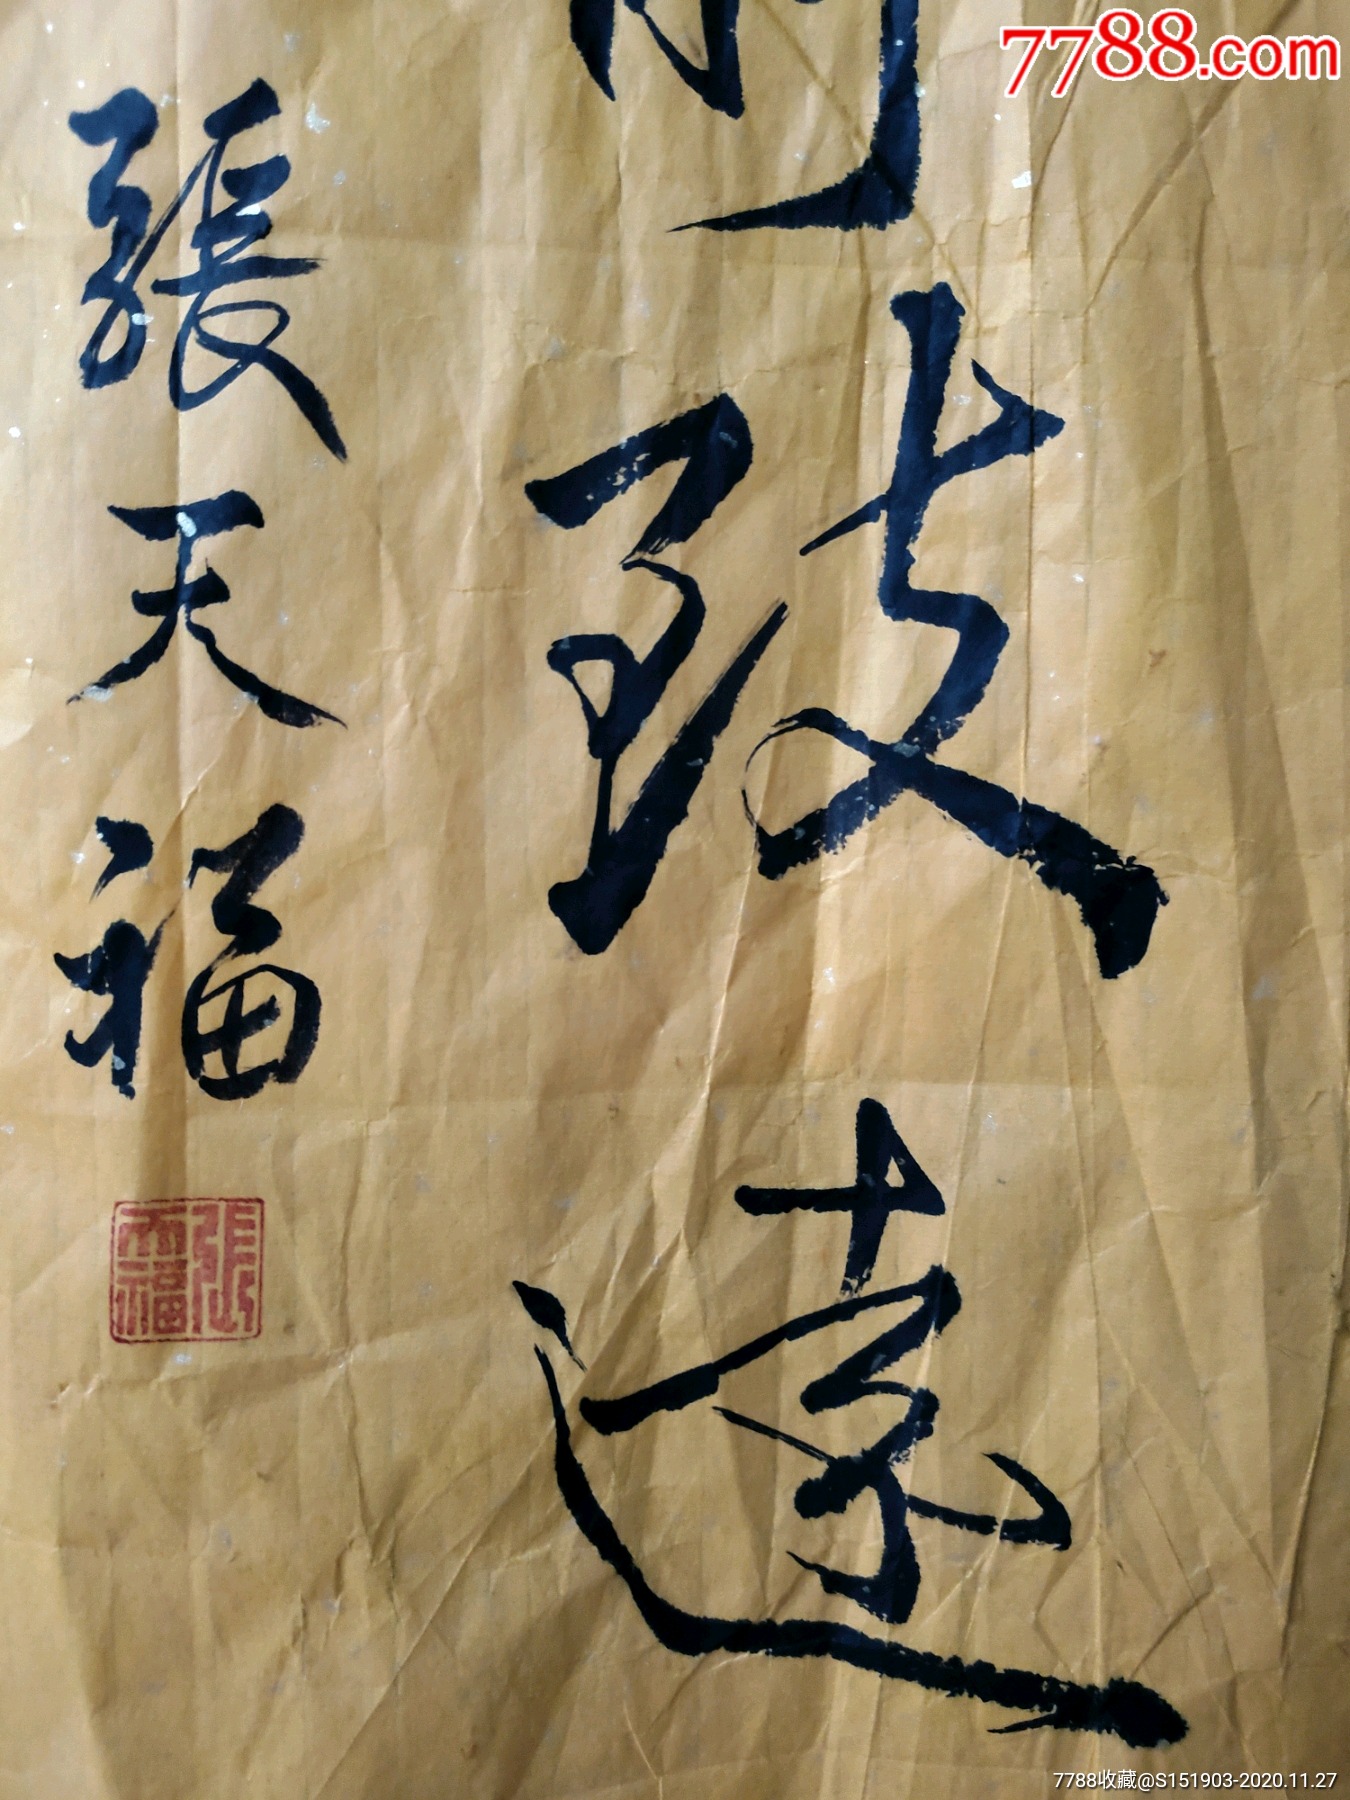 7788.com
致遠
張天福
張天福
7788收藏@S151903-2020.11.27